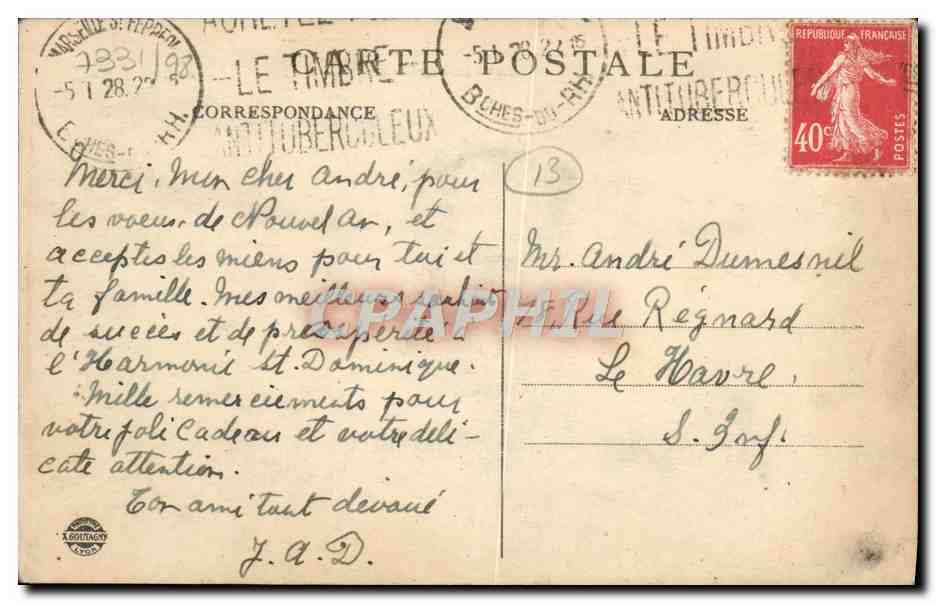 MARSEILLE ST FERREOL
7331/98
-5 1 28
BCHES-DU-RH.
ACHETEZ
LE TIMBRE
ANTITUBERCULEUX
-5 1 28 22 15
BCHES-DU-RH
LE TIMBRE
ANTITUBERCULEUX
CARTE POSTALE
CORRESPONDANCE
ADRESSE
REPUBLIQUE FRANÇAISE
40c
POSTES
13
Merci, mon cher André, pour
les voeux de Nouvel An, et
acceptes les miens pour toi et
ta famille. Mes meilleurs souhaits
de succès et de prospérité à
l'Harmonie St. Dominique.
Mille remerciements pour
votre joli Cadeau et votre déli-
cate attention.
Ton ami tout dévoué
J. A. D.
Mr. André Dumesnil
78, Rue Régnard
Le Havre,
S. Inf.
CPAPHIL
X. GOUTAGNY
LYON